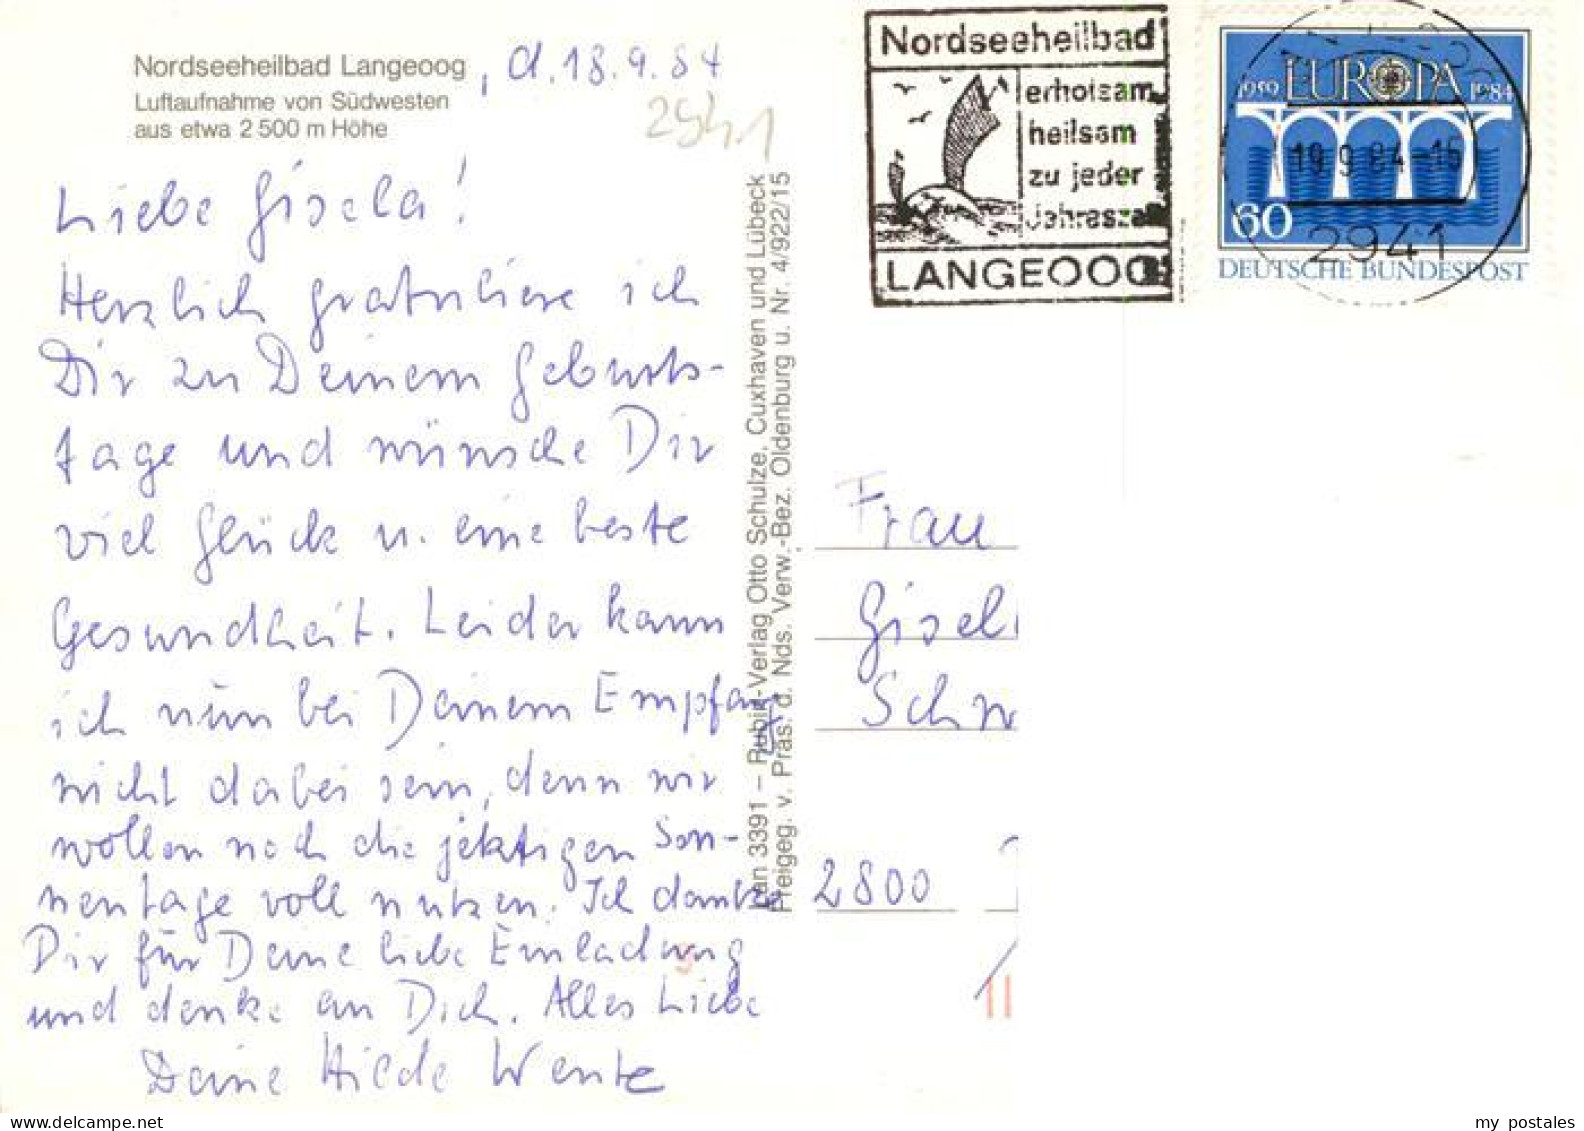 Nordseeheilbad Langeoog, d. 18.9.84
Luftaufnahme von Südwesten
aus etwa 2 500 m Höhe
2941
Liebe Gisela!
Herzlich gratuliere ich
Dir zu Deinem Geburts-
tage und wünsche Dir
viel Glück u. eine beste
Gesundheit. Leider kann
ich nun bei Deinem Empfang
nicht dabei sein, denn wir
wollen noch die jetzigen Son-
nentage voll nutzen. Ich danke
Dir für Deine liebe Einladung
und denke an Dich. Alles Liebe
Deine Hilde Wente
3391 – Rubin-Verlag Otto Schulze, Cuxhaven und Lübeck
Freigeg. v. Präs. d. Nds. Verw.-Bez. Oldenburg u. Nr. 4/922/15
Nordseeheilbad
erholsam
heilsam
zu jeder
Jahresza
LANGEOOG
1959 EUROPA 1984
19.9.84-15
60
2941
DEUTSCHE BUNDESPOST
Frau
Gisel
Schw
2800
my postales